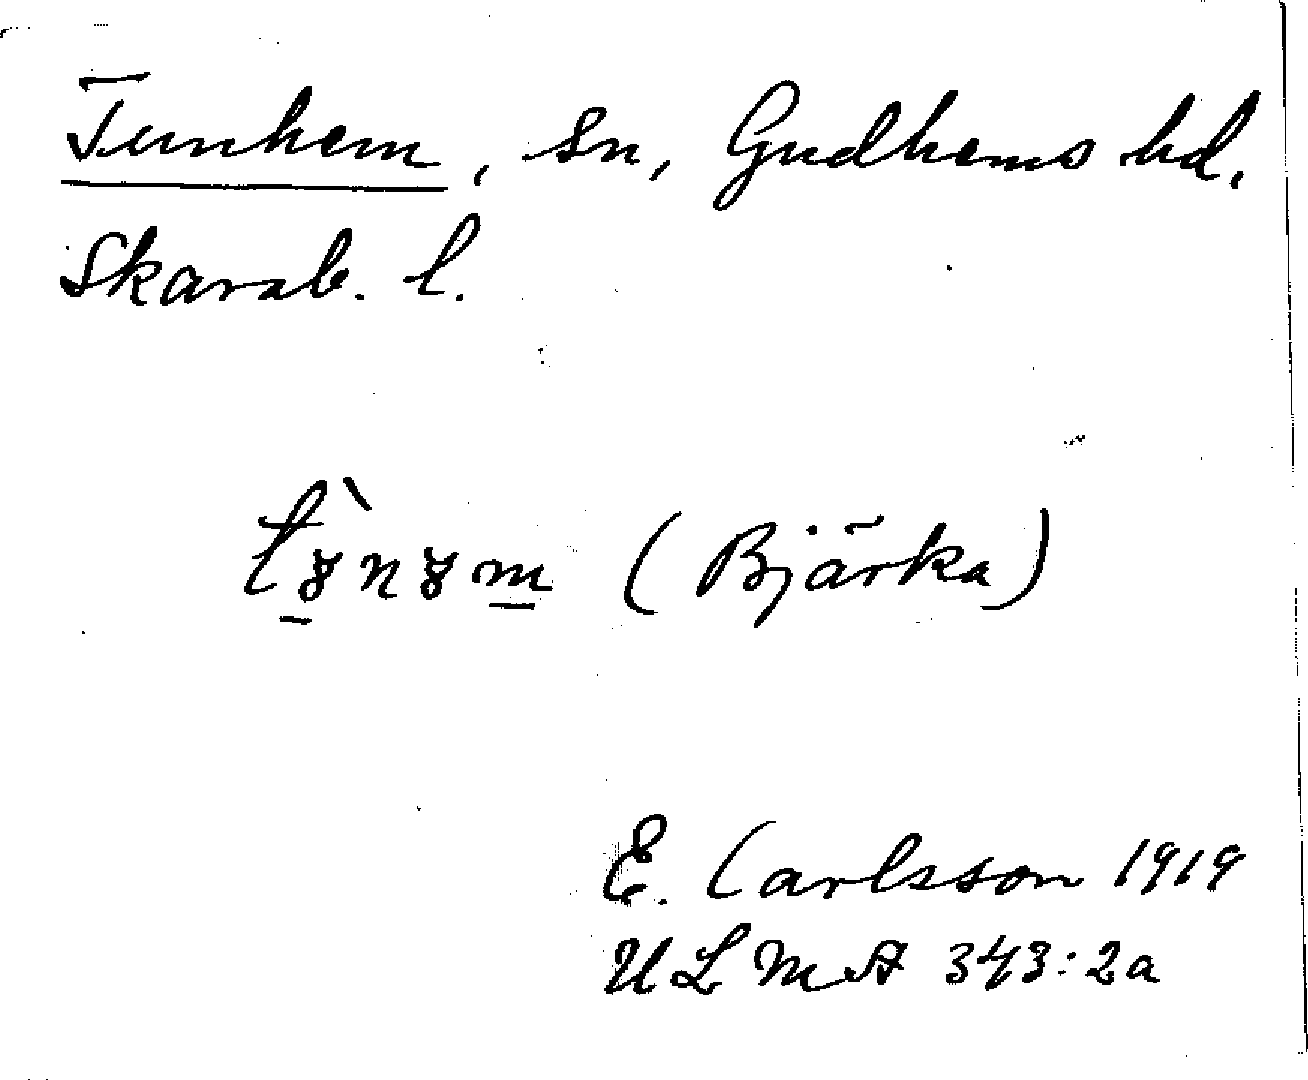 Tunhem, sn, Gudhems hd.
Skarab. l.
(Bjärka)
E. Carlsson 1919
ULMA 343:2a